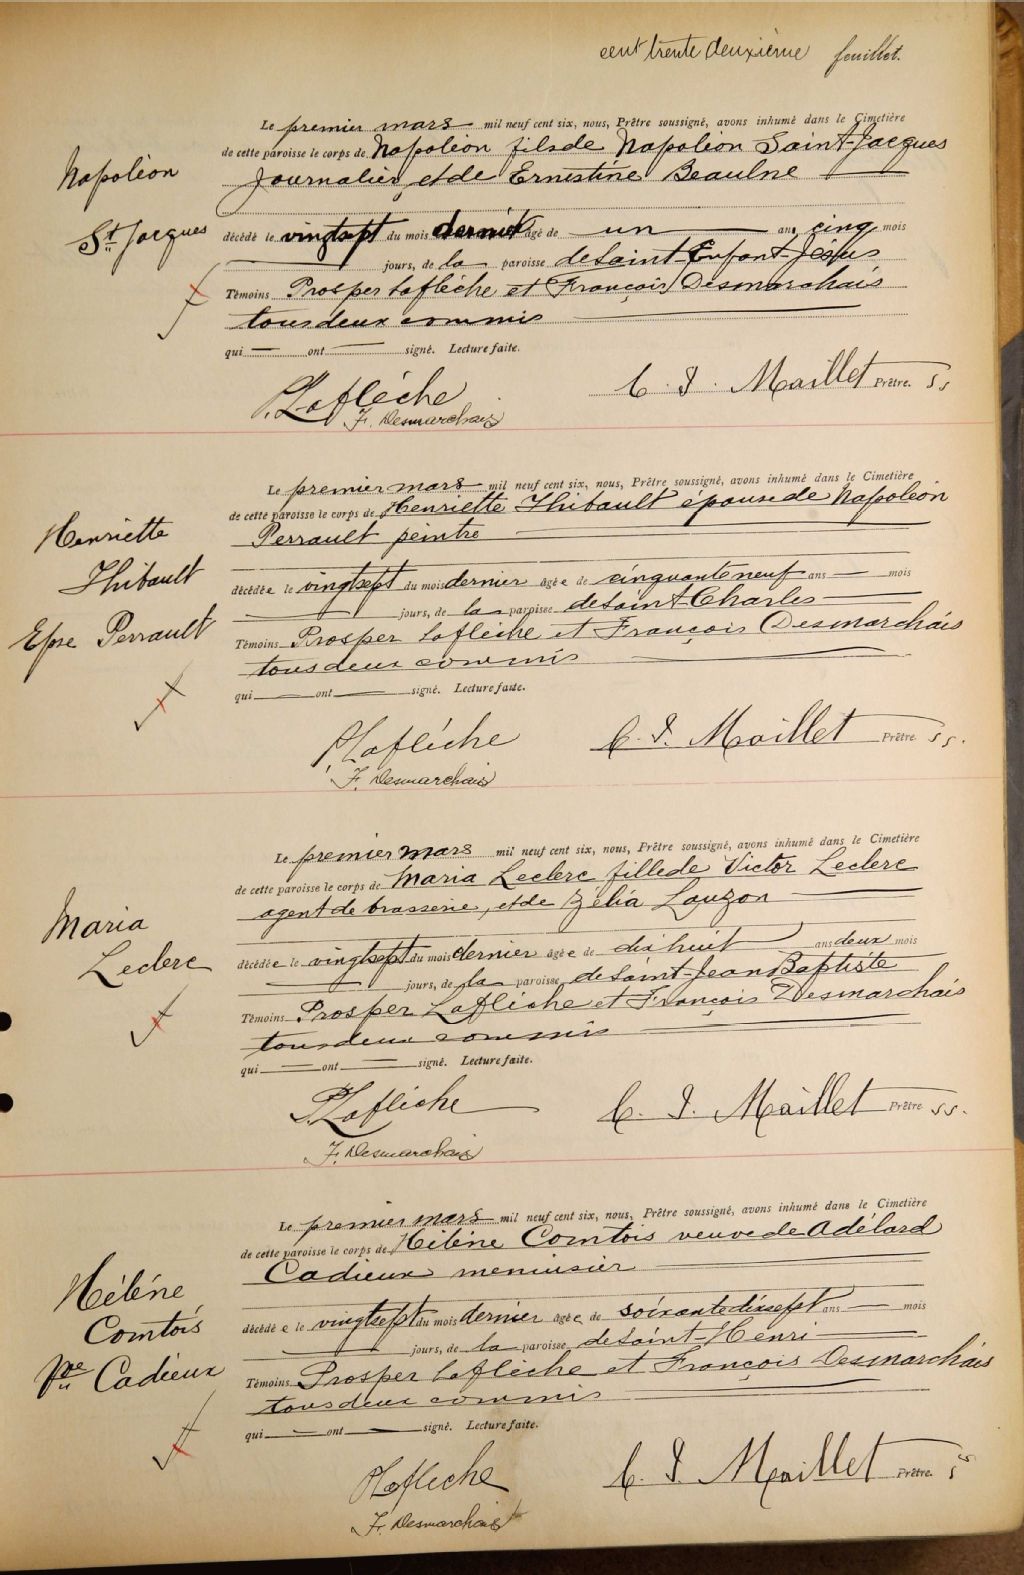 cent trente deuxième feuillet.
Le premier mars mil neuf cent six, nous, Prêtre soussigné, avons inhumé dans le Cimetière
de cette paroisse le corps de Napoléon fils de Napoléon Saint-Jacques
Journalier, et de Ernestine Beaulne
Napoléon
St Jacques
décédé le vingt sept du mois dernier âgé de un an, cinq mois
jours, de la paroisse de Saint-Enfant-Jésus
Témoins Prosper Laflèche et François Desmarchais
tous deux commis
qui ont signé. Lecture faite.
P. Laflèche
F. Desmarchais
C. I. Maillet Prêtre. SS
Le premier mars mil neuf cent six, nous, Prêtre soussigné, avons inhumé dans le Cimetière
de cette paroisse le corps de Henriette Thibault épouse de Napoléon
Perrault peintre
Henriette
Thibault
Epse Perrault
décédée le vingt sept du mois dernier âgée de cinquante neuf ans mois
jours, de la paroisse de Saint-Charles
Témoins Prosper Laflèche et François Desmarchais
tous deux commis
qui ont signé. Lecture faite.
P. Laflèche
F. Desmarchais
C. I. Maillet Prêtre SS.
Le premier mars mil neuf cent six, nous, Prêtre soussigné, avons inhumé dans le Cimetière
de cette paroisse le corps de Maria Leclerc fille de Victor Leclerc
agent de brasserie, et de Zélia Lauzon
Maria
Leclerc
décédée le vingt sept du mois dernier âgée de dix huit ans deux mois
jours, de la paroisse de Saint-Jean Baptiste
Témoins Prosper Laflèche et François Desmarchais
tous deux commis
qui ont signé. Lecture faite.
P. Laflèche
F. Desmarchais
C. I. Maillet Prêtre SS.
Le premier mars mil neuf cent six, nous, Prêtre soussigné, avons inhumé dans le Cimetière
de cette paroisse le corps de Hélène Comtois veuve de Adélard
Cadieux menuisier
Hélène
Comtois
Vve Cadieux
décédée le vingt sept du mois dernier âgée de soixante dix sept ans mois
jours, de la paroisse de Saint-Henri
Témoins Prosper Laflèche et François Desmarchais
tous deux commis
qui ont signé. Lecture faite.
P. Laflèche
F. Desmarchais
C. I. Maillet Prêtre. SS